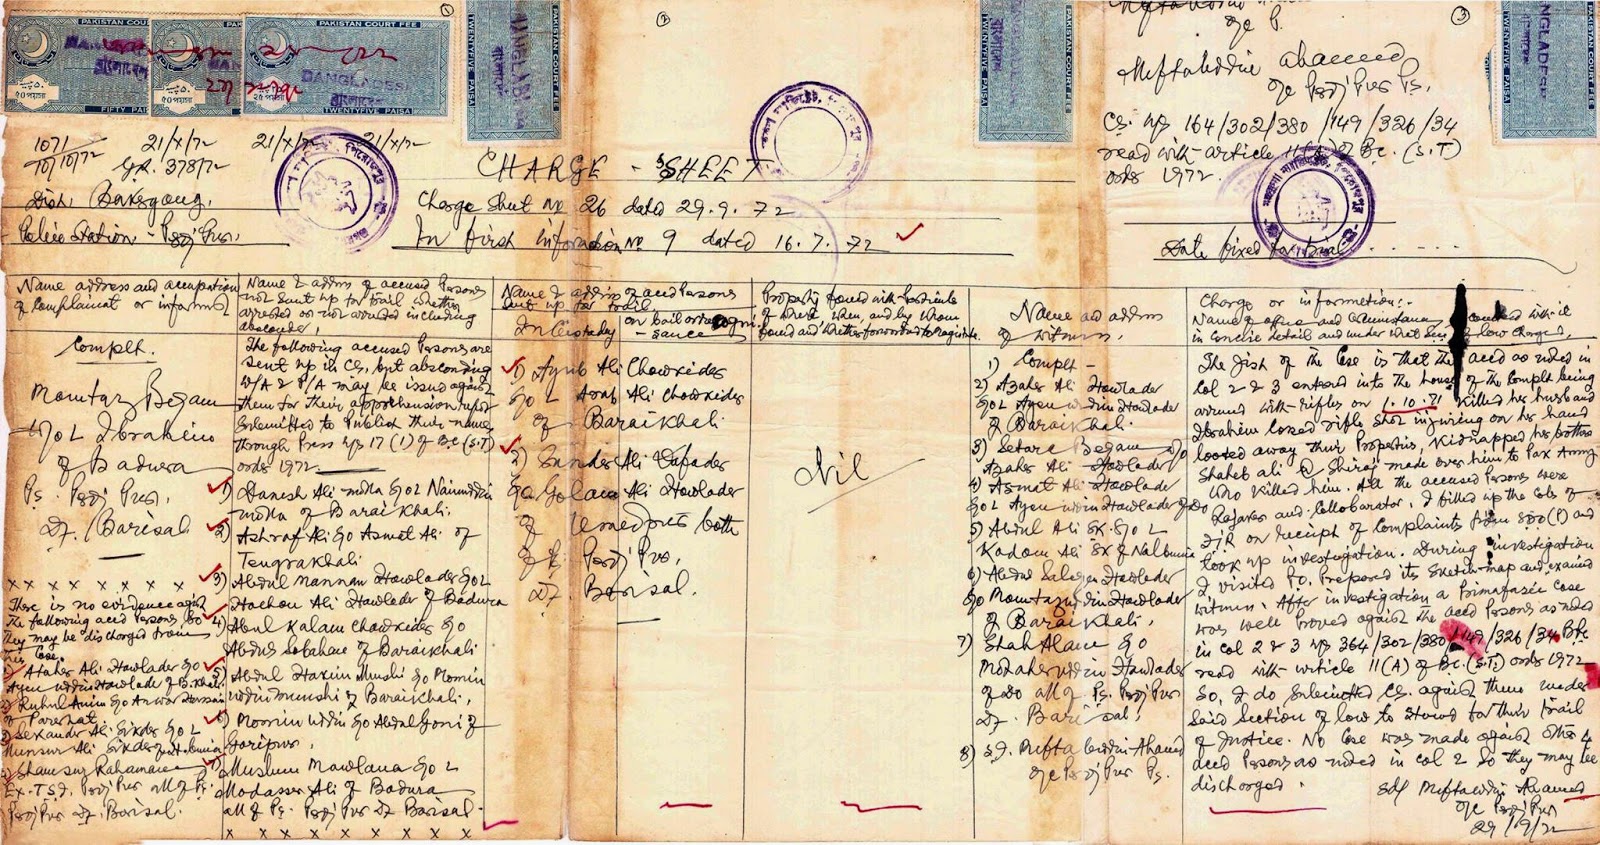 PAKISTAN COURT FEE
PAKISTAN COURT FEE
BANGLADESH
বাংলাদেশ
৫০ পয়সা
৫০ পয়সা
২৫ পয়সা
FIFTY PAISA
TWENTYFIVE PAISA
1071
10/10/72
21/X/72
21/X/72
21/X/72
G.R. 378/72
Dist. Bakergong.
Police Station - Peroj Pur.
CHARGE - SHEET
Charge Sheet No 26 dated 29.9.72
In First information No. 9 dated 16.7.72
Name address and occupation
of complainat or informat
Complt.
Momtaz Begam
Ibrahim
of Badura
Ps. Peroj Pur,
Dt. Barisal
x x x x x x x x
There is no evidence agist
the following aced Persons So
they may be discharged from
Case.
Ataher Ali Howlader S/O
Ayen uddin Howlader of B.khali
Ruhul Amin S/O Anwar Hossain
of Parerhat
Sekander Ali Sikder S/O L
Munsur Ali Sikder
Shamsur Rahaman
all of Ps.
Peroj Pur Dt. Barisal.
Name & address of accused Persons
not sent up for trail whether
arrested or not arrested including
absconder,
The following accused Persons are
sent up in CS, but absconding
W/A & P/A may be issued agaist
them for their apprehension
submitted to Publish their names
through Press U/S 17 (1) of B.C (S.T)
order 1972
1) Danesh Ali molla S/O L Naimuddin
molla of Baraikhali.
2) Ashraf Ali S/O Asmat Ali of
Tengrakhali
3) Abdul mannan Howlader S/O L
Hachon Ali Howlader of Badura
4) Abul Kalam Chowkider S/O
Abdus Sobahan of Baraikhali
5) Abdul Hakim Munshi S/O Momin
uddin munshi of Baraikhali,
6) Momin uddin S/O Abdul Goni of
Goripur,
7) Muslem Mawlana S/O L
Modasser Ali of Badura
all of Ps. Peroj Pur Dt Barisal.
x x x x x x x x x
Name & address of aced Persons
sent up for trail.
In Custoday
on bail or recogni-
sance
1) Ayub Ali Chowkider
S/O L Arab Ali Chowkider
of Baraikhali
2) Sunder Ali Dafader
S/O Golam Ali Howlader
of Umedpur both
of Ps. Peroj Pur,
Dt. Barisal.
Property found with Particulers
of where when, and by whom
found and whether forwarded to Magistrate.
Nil
Name and address
of witness.
1) Complt -
2) Azaher Ali Howlader
S/O L Ayen uddin Howlader
of Baraikhali.
3) Setara Begam
Azaher Ali Howlader
4) Asmat Ali Howlader
S/O L Ayen uddin Howlader of Do
5) Abdul Ali SK S/O L
Kadam Ali SK of Nalbunia
6) Abdus Salam Howlader
S/O Momtaz uddin Howlader
of Baraikhali,
7) Shah Alam S/O
Mozaher uddin Howlader
of Do all of Ps. Peroj Pur
Dt. Barisal,
8) S.I. Meftahuddin Ahamed
o/c Peroj Pur Ps.
Meftahuddin Ahamed
o/c Peroj Pur Ps.
CS. U/S 164/302/380/149/326/34
read with article 11(A) of B.C. (S.T)
order 1972.
Date fixed for trial
Charge or information:-
Name of office and Circumstances
in Concise detail and under what Sec of low charged.
The fist of the Case is that the aced as noted in
Col 2 & 3 entered into the house of the complt being
armed with rifles on 1.10.71 Killed her husband
Ibrahim caused rifle shot injuring on her hand
looted away their Properties, Kidnapped her brothers
Shaheb ali @ Shiraj made over him to Pak Army
who killed him. All the accused Persons were
Rajakar and Collobarator, I filled up the Cols of
FIR on receipt of Complaints from SDO(P) and
took up investigation. During investigation
I visited P.O. Prepared its Sketch-map and examed
witness. After investigation a Primafasie Case
was well Proved agaist the aced Persons as noted
in col 2 & 3 U/S 364/302/380/149/326/34 BPc
read with article 11(A) of B.C. (S.T.) order 1972
So, I do Submitted CS. agaist them under
Said Section of low to Stand for their trail
of Justice. No Case was made agaist other 4
aced Persons as noted in col 2 So they may be
discharged.
Sd/ Meftauddin Ahamed
o/c Peroj Pur
29/9/72